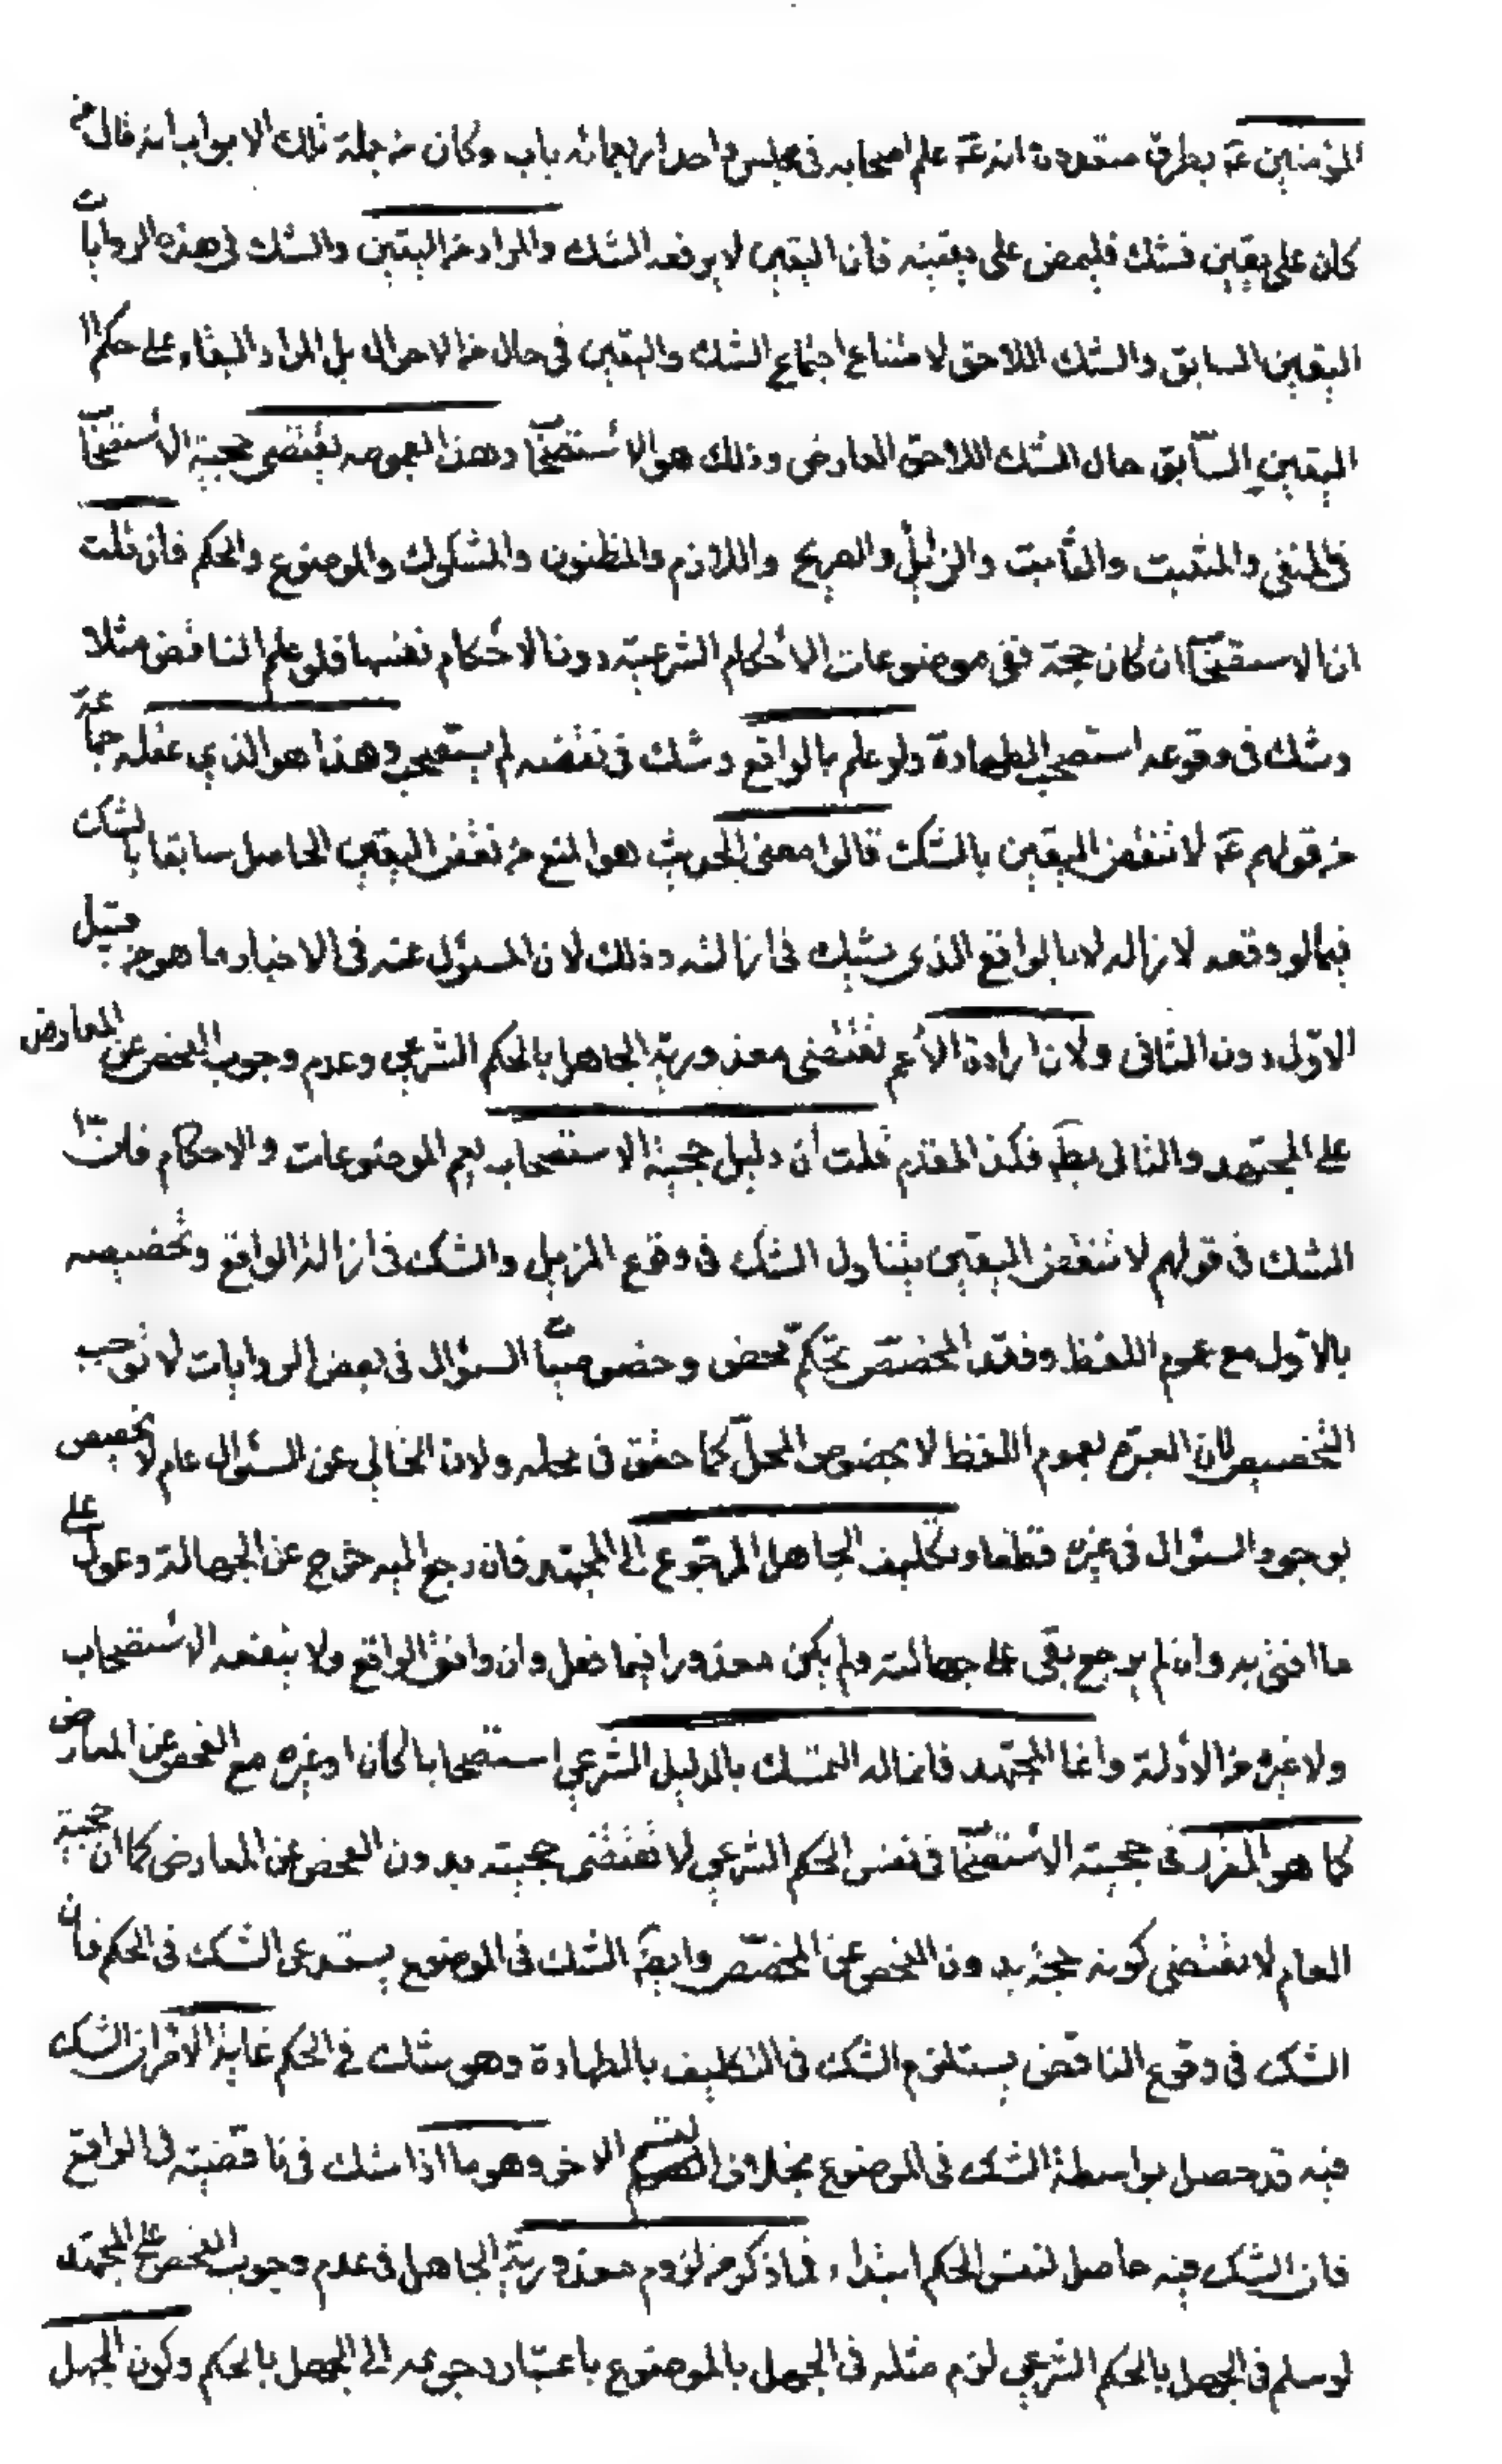 المؤمنين عَ بطرق متعددة انه عَ علم اصحابه فى مجلس واحد اربعمائه باب وكان من جملة تلك الابواب انه قال من
كان على يقين فشك فليمض على يقينه فان اليقين لا يرفعه الشك والمراد من اليقين والشك فى هذه الروايات
اليقين السابق والشك اللاحق لامتناع اجتماع الشك واليقين فى حال من الاحوال بل المراد البقاء على حكم ا
اليقين السّابق حال الشك اللاحق العارض وذلك هو الاستصحاب وهذا العموم يقتضى حجية الاستصحاب
فى المنفى والمثبت والثابت والزايل والصريح واللازم والمظنون والمشكوك والموضوع والحكم فان قلت
ان الاستصحاب ان كان حجة ففى موضوعات الاحكام الشرعية دون الاحكام نفسها فلو علم الناقض مثلا
وشك فى وقوعه استصحب الطهارة ولو علم بالواقع وشك فى نقضه لم يستصحب وهذا هو الذي عقله جماعة
من قولهم عَ لا تنقض اليقين بالشك قالوا معنى الحديث هو المنع من نقض اليقين الحاصل سابقا بالشك
فيما لو وقع لازاله لا بالواقع الذى يشك فى ازالته وذلك لان المسئول عنه فى الاخبار ما هو من قبيل
الاوّل دون الثانى ولان ارادة الأعم تقتضى معذورية الجاهل بالحكم الشرعي وعدم وجوب الفحص عن المعارض
على المجتهد والتالى بط فكذا المقدم قلت ان دليل حجية الاستصحاب يعم الموضوعات والاحكام فانّ ا
الشك فى قولهم لا تنقض اليقين يتناول الشك فى وقوع المزيل والشك فى ازالة الواقع وتخصيصه
بالاول مع عموم اللفظ وفقد المخصّص تحكّم محض وخصوصيات السؤال فى بعض الروايات لا توجب
التخصيص لان العبرة بعموم اللفظ لا بخصوص المحلّ كما حقق فى محله ولان الخالي عن السئوال عام لا تخصيص
بوجود السئوال فى غيره قطعا وتكليف الجاهل الرجوع الى المجتهد فان رجع اليه خرج عن الجهالة وعول على
ما افتى به وان لم يرجع بقى على جهالته ولم يكن معذورا فيما فعل وان وافق الواقع ولا ينفعه الاستصحاب
ولا غيره من الأدلة وانما المجتهد فانما له التمسك بالدليل الشرعي استصحابا كان او غيره مع الفحص عن المعارض
كما هو المقرر فى حجية الاستصحاب فى نفس الحكم الشرعي لا تقتضى حجيته بدون الفحص عن المعارض كما ان حجية
العام لا تقتضى كونه حجة بدون الفحص عن المخصّص وايضَ الشك فى الموضوع يستدعى الشك فى الحكم فان
الشك فى وقوع الناقض يستلزم الشك فى التكليف بالطهارة وهو شك فى الحكم غاية الامر ان الشك
فيه قد حصل بواسطة الشك فى الموضوع بخلاف القسم الاخر وهو ما اذا شك فى ناقضية الواقع
فان الشك فيه حاصل لنفس الحكم ابتداء فما ذكر من لزوم معذورية الجاهل فى عدم وجوب الفحص على المجتهد
لو سلم فى الجهل بالحكم الشرعي لزم مثله فى الجهل بالموضوع باعتبار رجوعه الى الجهل بالحكم وكون الجهل